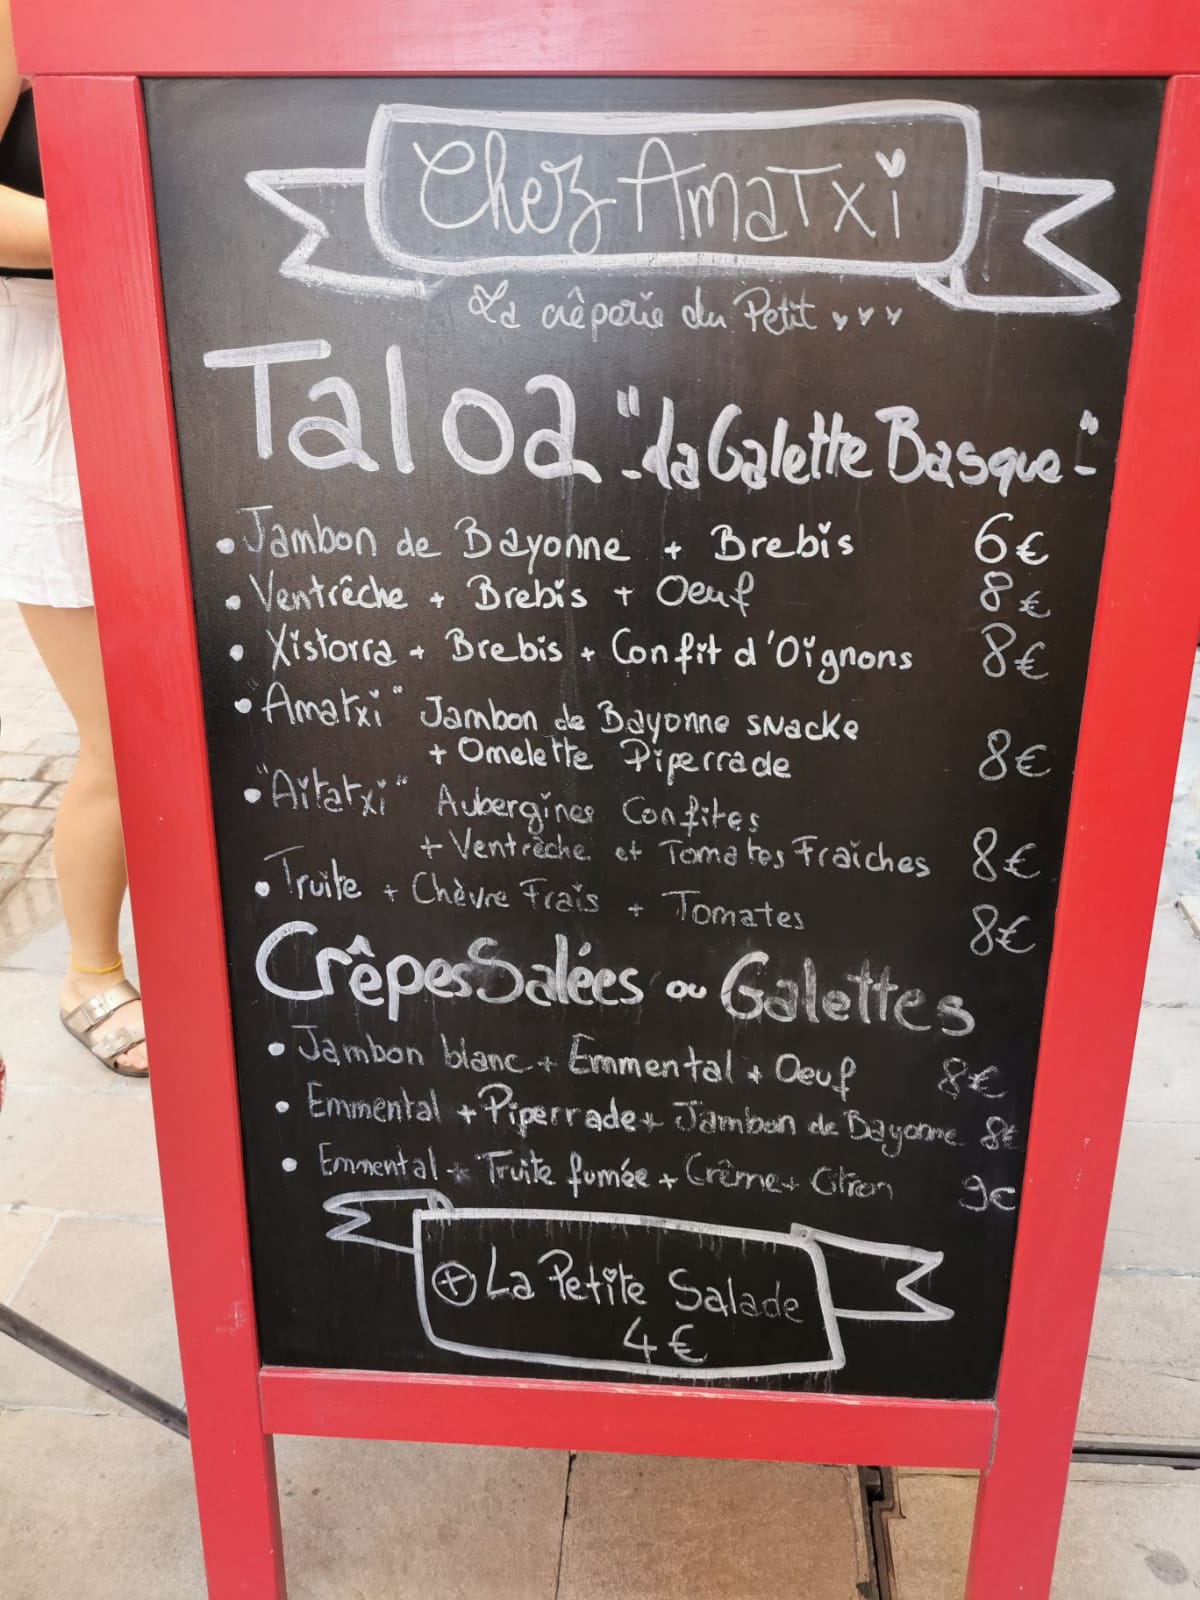 Chez Amatxi
La crêperie du Petit
Taloa "la Galette Basque"
• Jambon de Bayonne + Brebis 6€
• Ventrêche + Brebis + Oeuf 8€
• Xistorra + Brebis + Confit d'Oignons 8€
• Amatxi" Jambon de Bayonne SNACKE
+ Omelette Piperrade 8€
• "Aitatxi" Aubergines Confites
+ Ventrèche et Tomates Fraîches 8€
• Truite + Chèvre Frais + Tomates 8€
Crêpes Salées ou Galettes
• Jambon blanc + Emmental + Oeuf 8€
• Emmental + Piperrade + Jambon de Bayonne 8€
• Emmental + Truite fumée + Crème + Citron 9€
+ La Petite Salade
4€